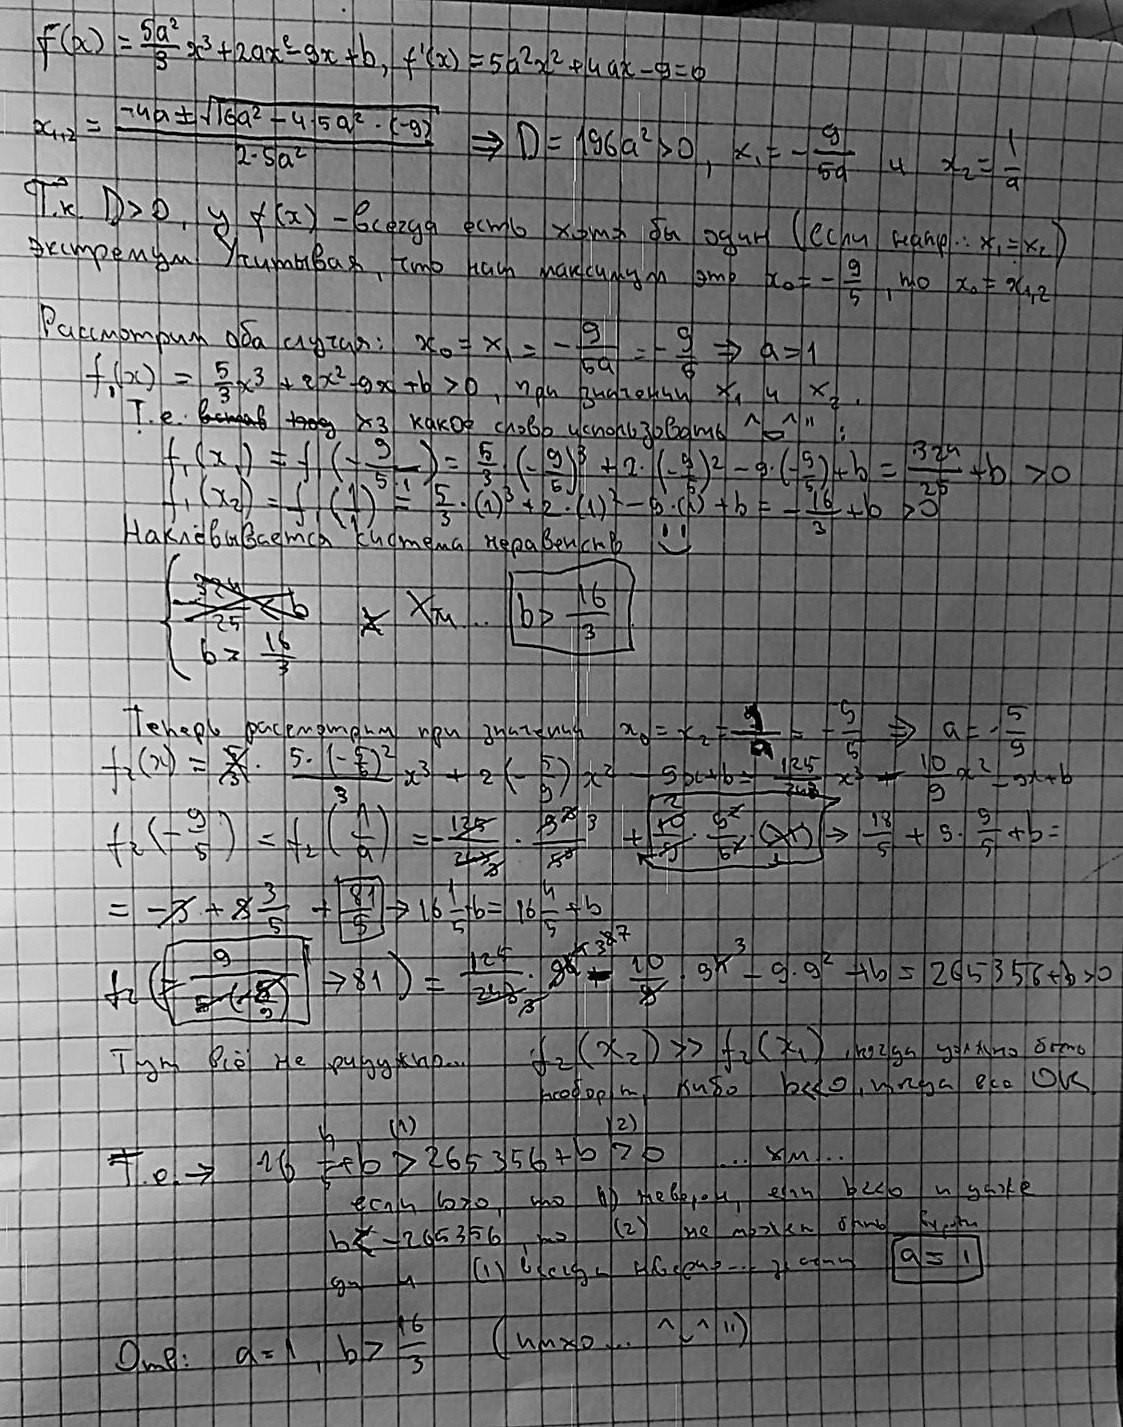 f(x) = 5a²/3 x³ + 2ax² - 9x + b, f'(x) = 5a²x² + 4ax - 9 = 0
x₁,₂ = (-4a ± √(16a² - 4·5a²·(-9))) / (2·5a²) ⇒ D = 196a² > 0, x₁ = -9/5a и x₂ = 1/a
Т.к. D > 0, у f(x) - всегда есть хотя бы один (если напр.: x₁ = x₂)
экстремум. Учитывая, что наш максимум это x₀ = -9/5, то x₀ = x₁,₂
Рассмотрим оба случая: x₀ = x₁ = -9/5a = -9/5 ⇒ a = 1
f₁(x) = 5/3 x³ + 2x² - 9x + b > 0, при значении x₁ и x₂.
Т.е. хз какое слово использовать ^_^":
f₁(x₁) = f₁(-9/5·1) = 5/3·(-9/5)³ + 2·(-9/5)² - 9·(-9/5) + b = 324/25 + b > 0
f₁(x₂) = f₁(1/1) = 5/3·(1)³ + 2·(1)² - 9·(1) + b = -16/3 + b > 0
Наклёвывается система неравенств
{ -324/25 < b
b > 16/3
Хм... b > 16/3
Теперь рассмотрим при значении x₀ = x₂ = 1/a = -9/5 ⇒ a = -5/9
f₂(x) = 5·(-5/9)²/3 x³ + 2(-5/9)x² - 9x + b = 125/243 x³ - 10/9 x² - 9x + b
f₂(-9/5) = f₂(1/a) = -125/243 · 9³/5³ + → 18/5 + 9·9/5 + b =
= -3 + 3/5 + 81/5 → 16 1/5 + b = 16 4/5 + b
f₂(-9/5·(-5/9) → 81) = 125/243 · - 10/9 · - 9·9² + b = 265356 + b > 0
Тут всё не радужно... f₂(x₂) >> f₂(x₁), когда должно быть
наоборот, либо b<<0, тогда все ОК
Т.е. → 16 4/5 + b >(1) 265356 + b >(2) 0 ... хм...
если b>0, то (1) неверен, если b<<0 и даже
b < -265356, то (2) не может быть
(1) всегда a = 1
Отв: a = 1, b > 16/3 (имхо... ^_^")